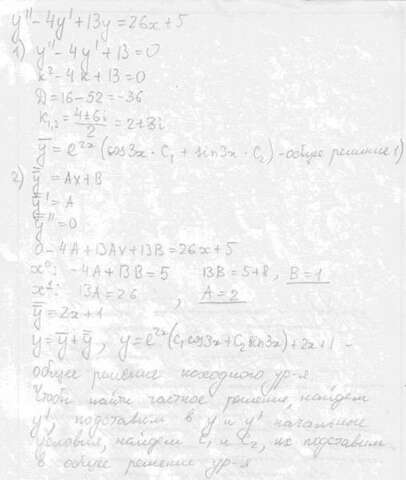 y'' - 4y' + 13y = 26x + 5
1) y'' - 4y' + 13 = 0
k² - 4k + 13 = 0
D = 16 - 52 = -36
K₁,₂ = (4 ± 6i)/2 = 2 ± 3i
ȳ = e^{2x} (cos3x · C₁ + sin3x · C₂) - общее решение 1)
2) ȳ̄ = Ax + B
ȳ̄' = A
ȳ̄'' = 0
0 - 4A + 13Ax + 13B = 26x + 5
x⁰: -4A + 13B = 5 13B = 5 + 8, B = 1
x¹: 13A = 26, A = 2
ȳ̄ = 2x + 1
y = ȳ + ȳ̄, y = e^{2x} (C₁cos3x + C₂sin3x) + 2x + 1 -
общее решение исходного ур-я
Чтобы найти частное решение, найдем
y', подставим в y и y' начальные
условия, найдем C₁ и C₂, их подставим
в общее решение ур-я